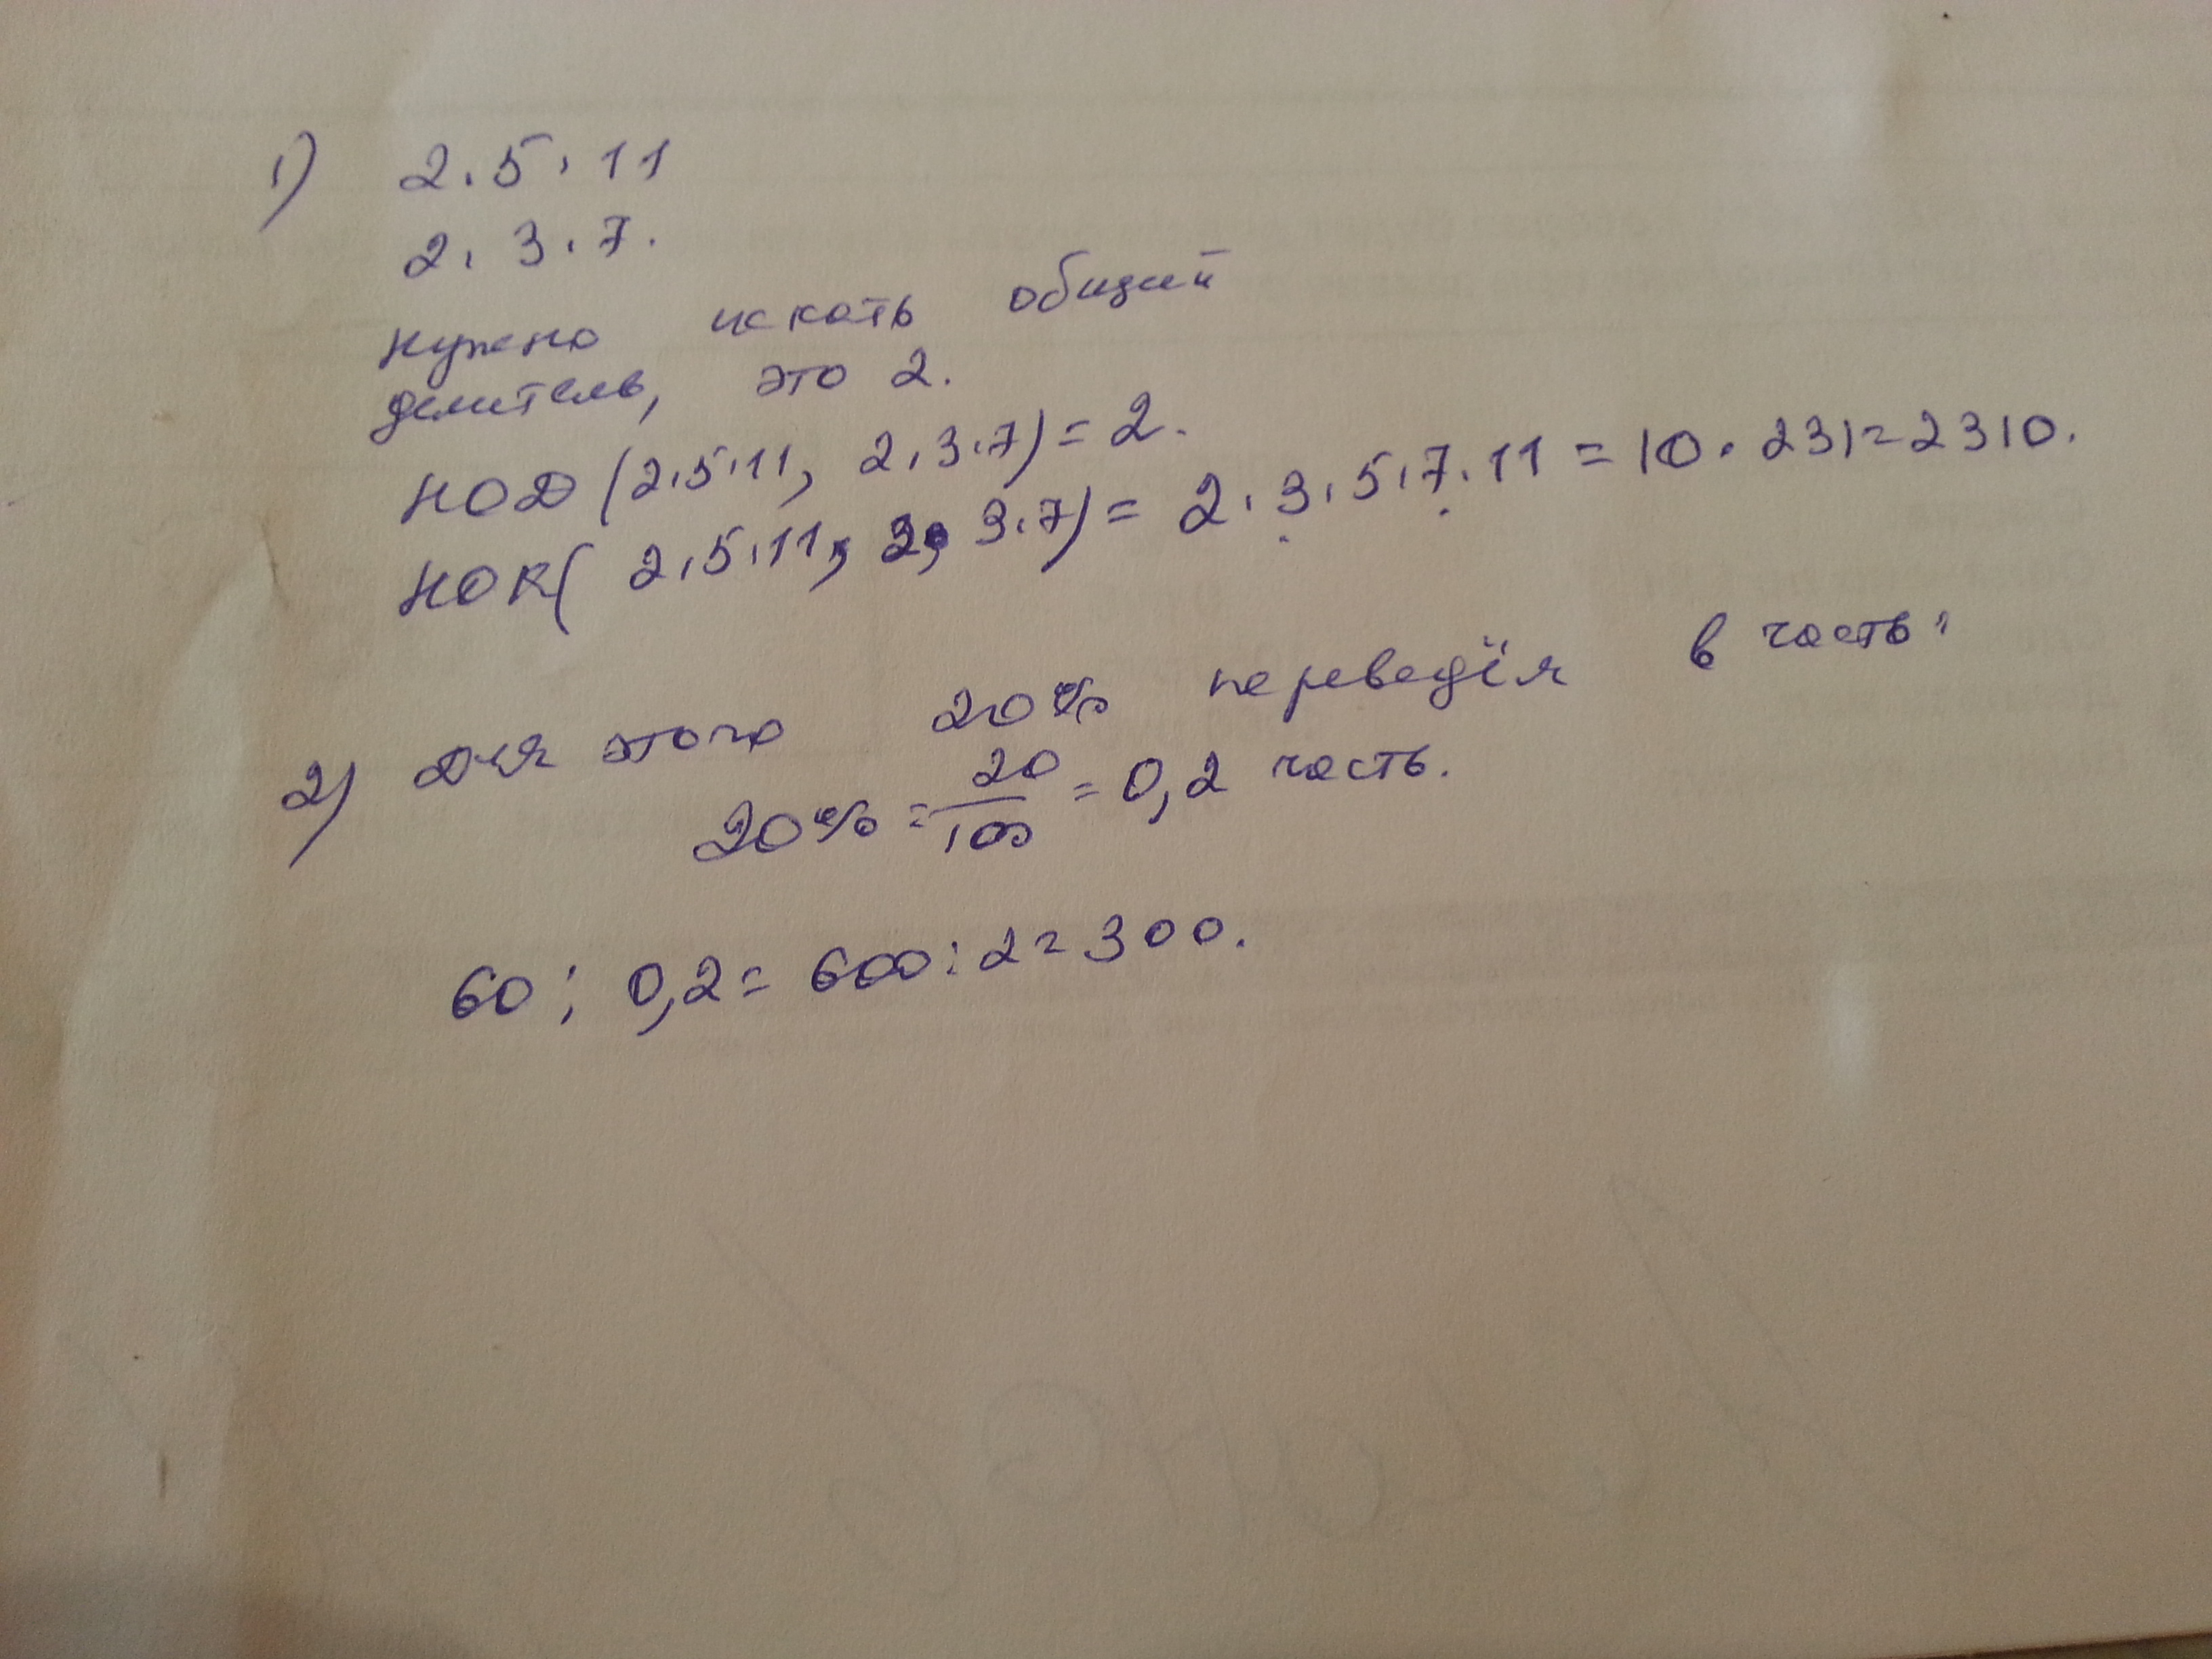 1) 2·5·11
2·3·7.
нужно искать общий
делитель, это 2.
НОД (2·5·11, 2·3·7) = 2.
НОК( 2·5·11, 2· 3·7) = 2·3·5·7·11 = 10·231=2310.
2) Для этого 20% переведём в часть:
20% = 20/100 = 0,2 часть.
60 : 0,2 = 600:2=300.